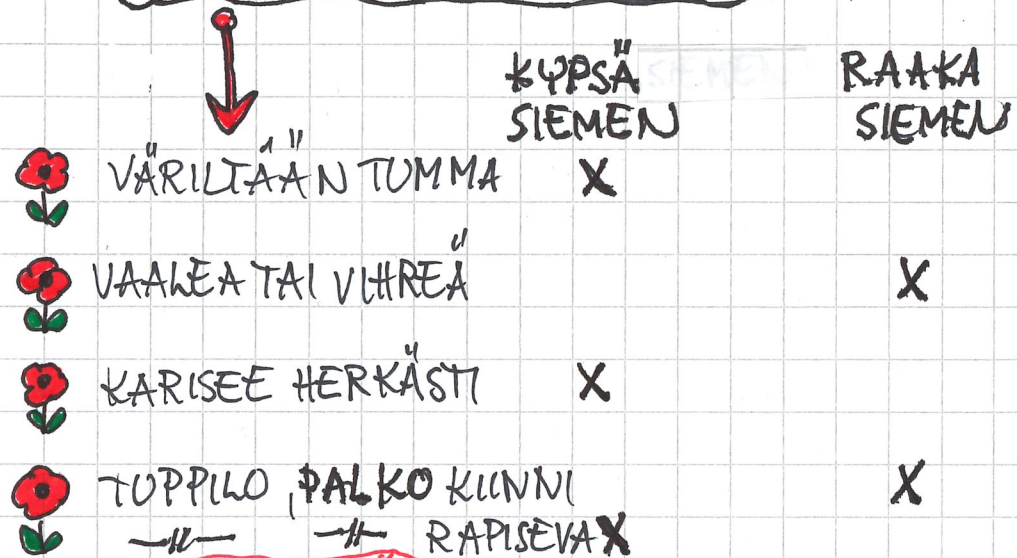 KYPSÄ RAAKA
SIEMEN SIEMEN
VÄRILTÄÄN TUMMA X
VAALEA TAI VIHREÄ X
KARISEE HERKÄSTI X
TUPPILO, PALKO KIINNI X
—〃— —〃— RAPISEVA X